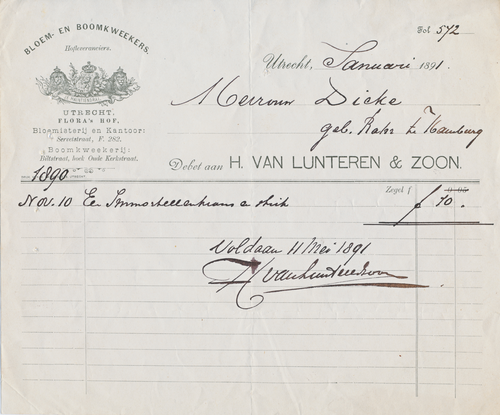 Fol 572
BLOEM- EN BOOMKWEEKERS.
Hofleveranciers.
UTRECHT,
FLORA'S HOF.
Bloemisterij en Kantoor:
Servetstraat, F. 282.
Boomkweekerij:
Biltstraat, hoek Oude Kerkstraat.
Utrecht, Januari 1891.
Mevrouw Dicke
geb. Rahr te Hamburg
Debet aan H. VAN LUNTEREN & ZOON.
1890
Zegel f 0.05
Nov. 10 Een Immortellenkrans a strik f 10.
Voldaan 11 Mei 1891
H van Lunteren & Zoon